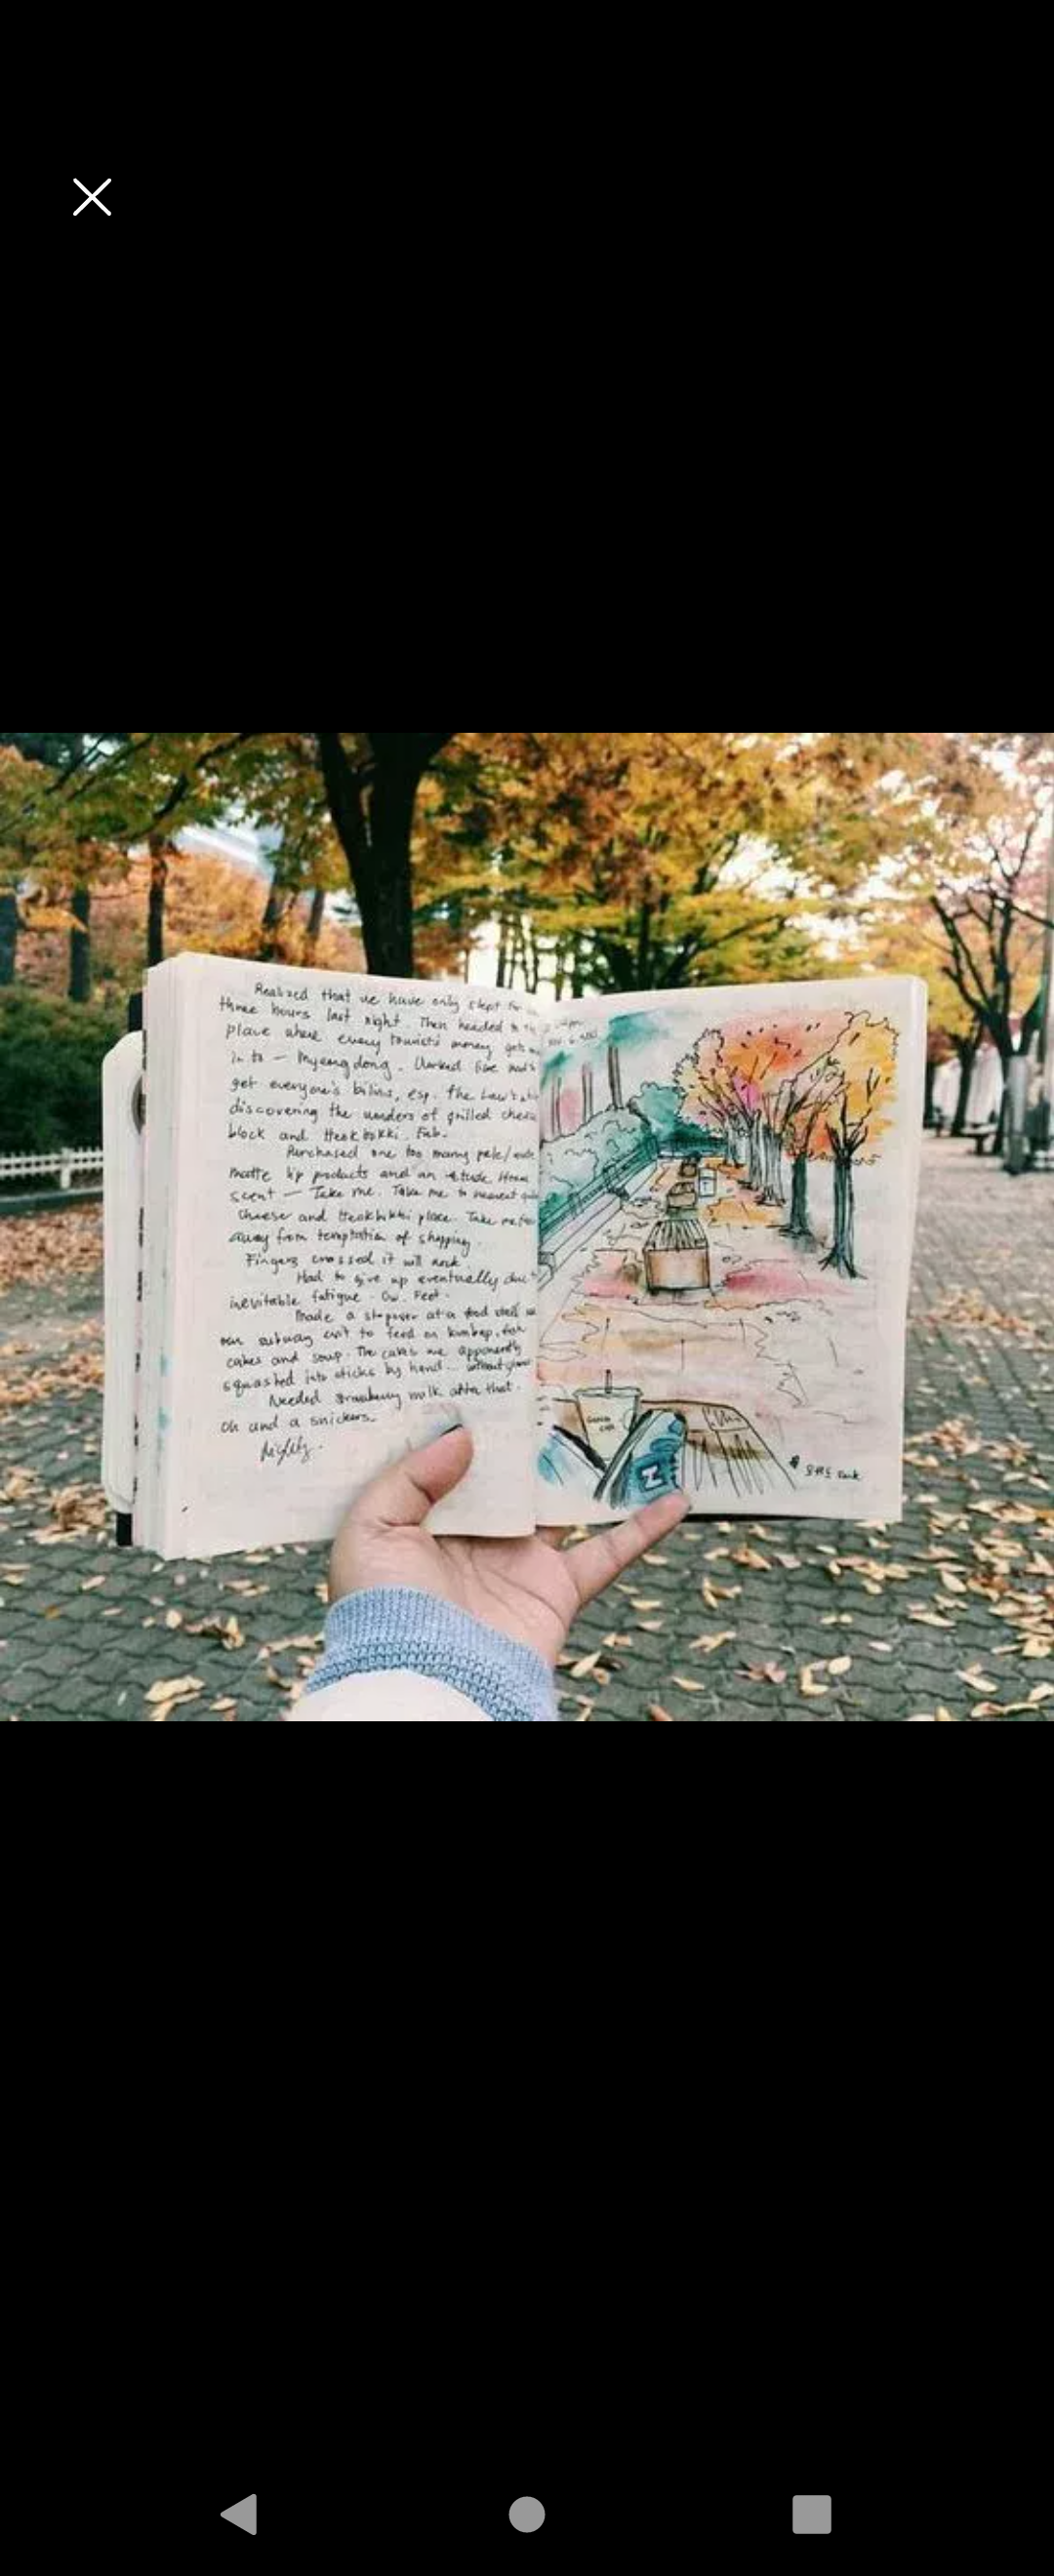 Realized that we have only slept for
three hours last night. Then headed to the
place where every tourist's money gets
in to — Myeongdong. Worked like
get everyone's bilins, esp. the
discovering the wonders of grilled cheese
block and tteokbokki.
Purchased one too many pale/nude
matte lip products and an etude House
scent — Take me. Take me to nearest
cheese and tteokbokki place. Take me far
away from temptation of shopping.
Fingers crossed it will work.
Had to give up eventually due to
inevitable fatigue. Ow. Feet.
Made a stopover at a food stall
our subway exit to feed on kimbap, fish
cakes and soup. The cakes are apparently
squashed into sticks by hand... without
Needed strawberry milk after that.
Oh and a snickers.